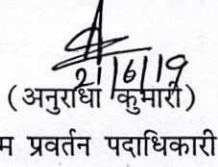 21/6/19
(अनुराधा कुमारी)
म प्रवर्तन पदाधिकारी